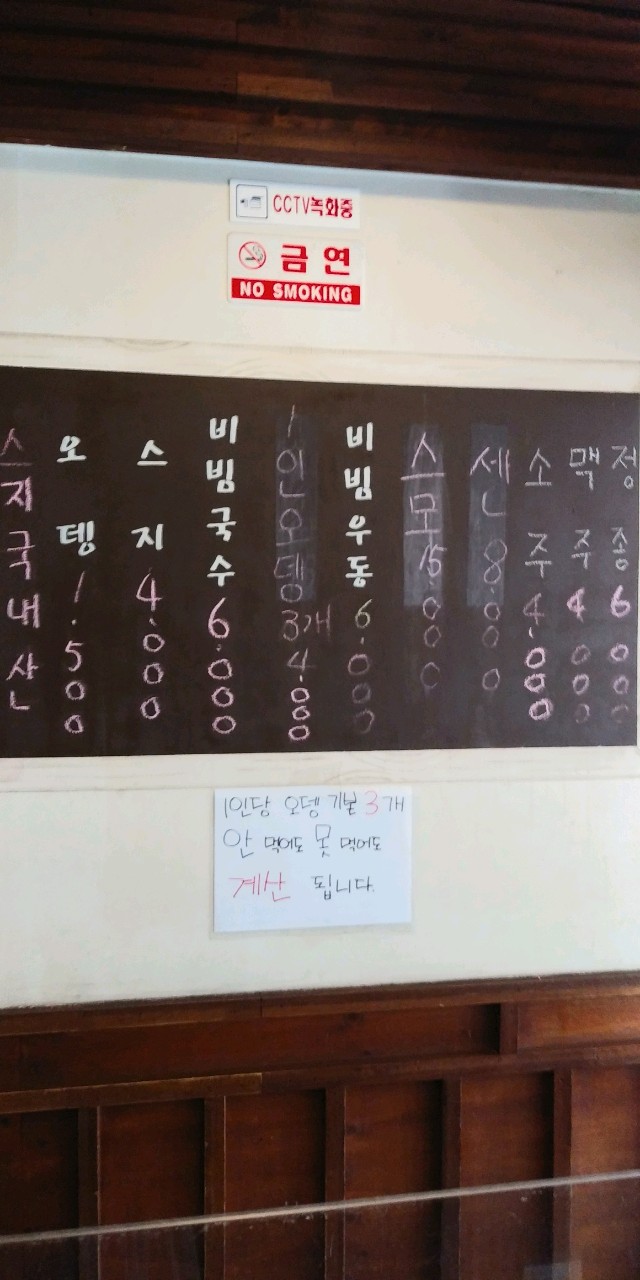 CCTV녹화중
금연
NO SMOKING
스지국내산
오텡 1.500
스지 4.000
비빔국수 6.000
1인오뎅 3개 4.000
비빔우동 6.000
소주 4.000
맥주 4000
정종 6000
1인당 오뎅 기본 3개
안 먹어도 못 먹어도
계산 됩니다.